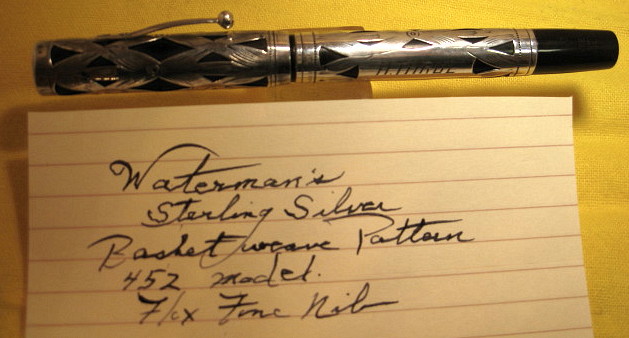 Waterman's
Sterling Silver
Basketweave Pattern
452 model.
Flex Fine Nib